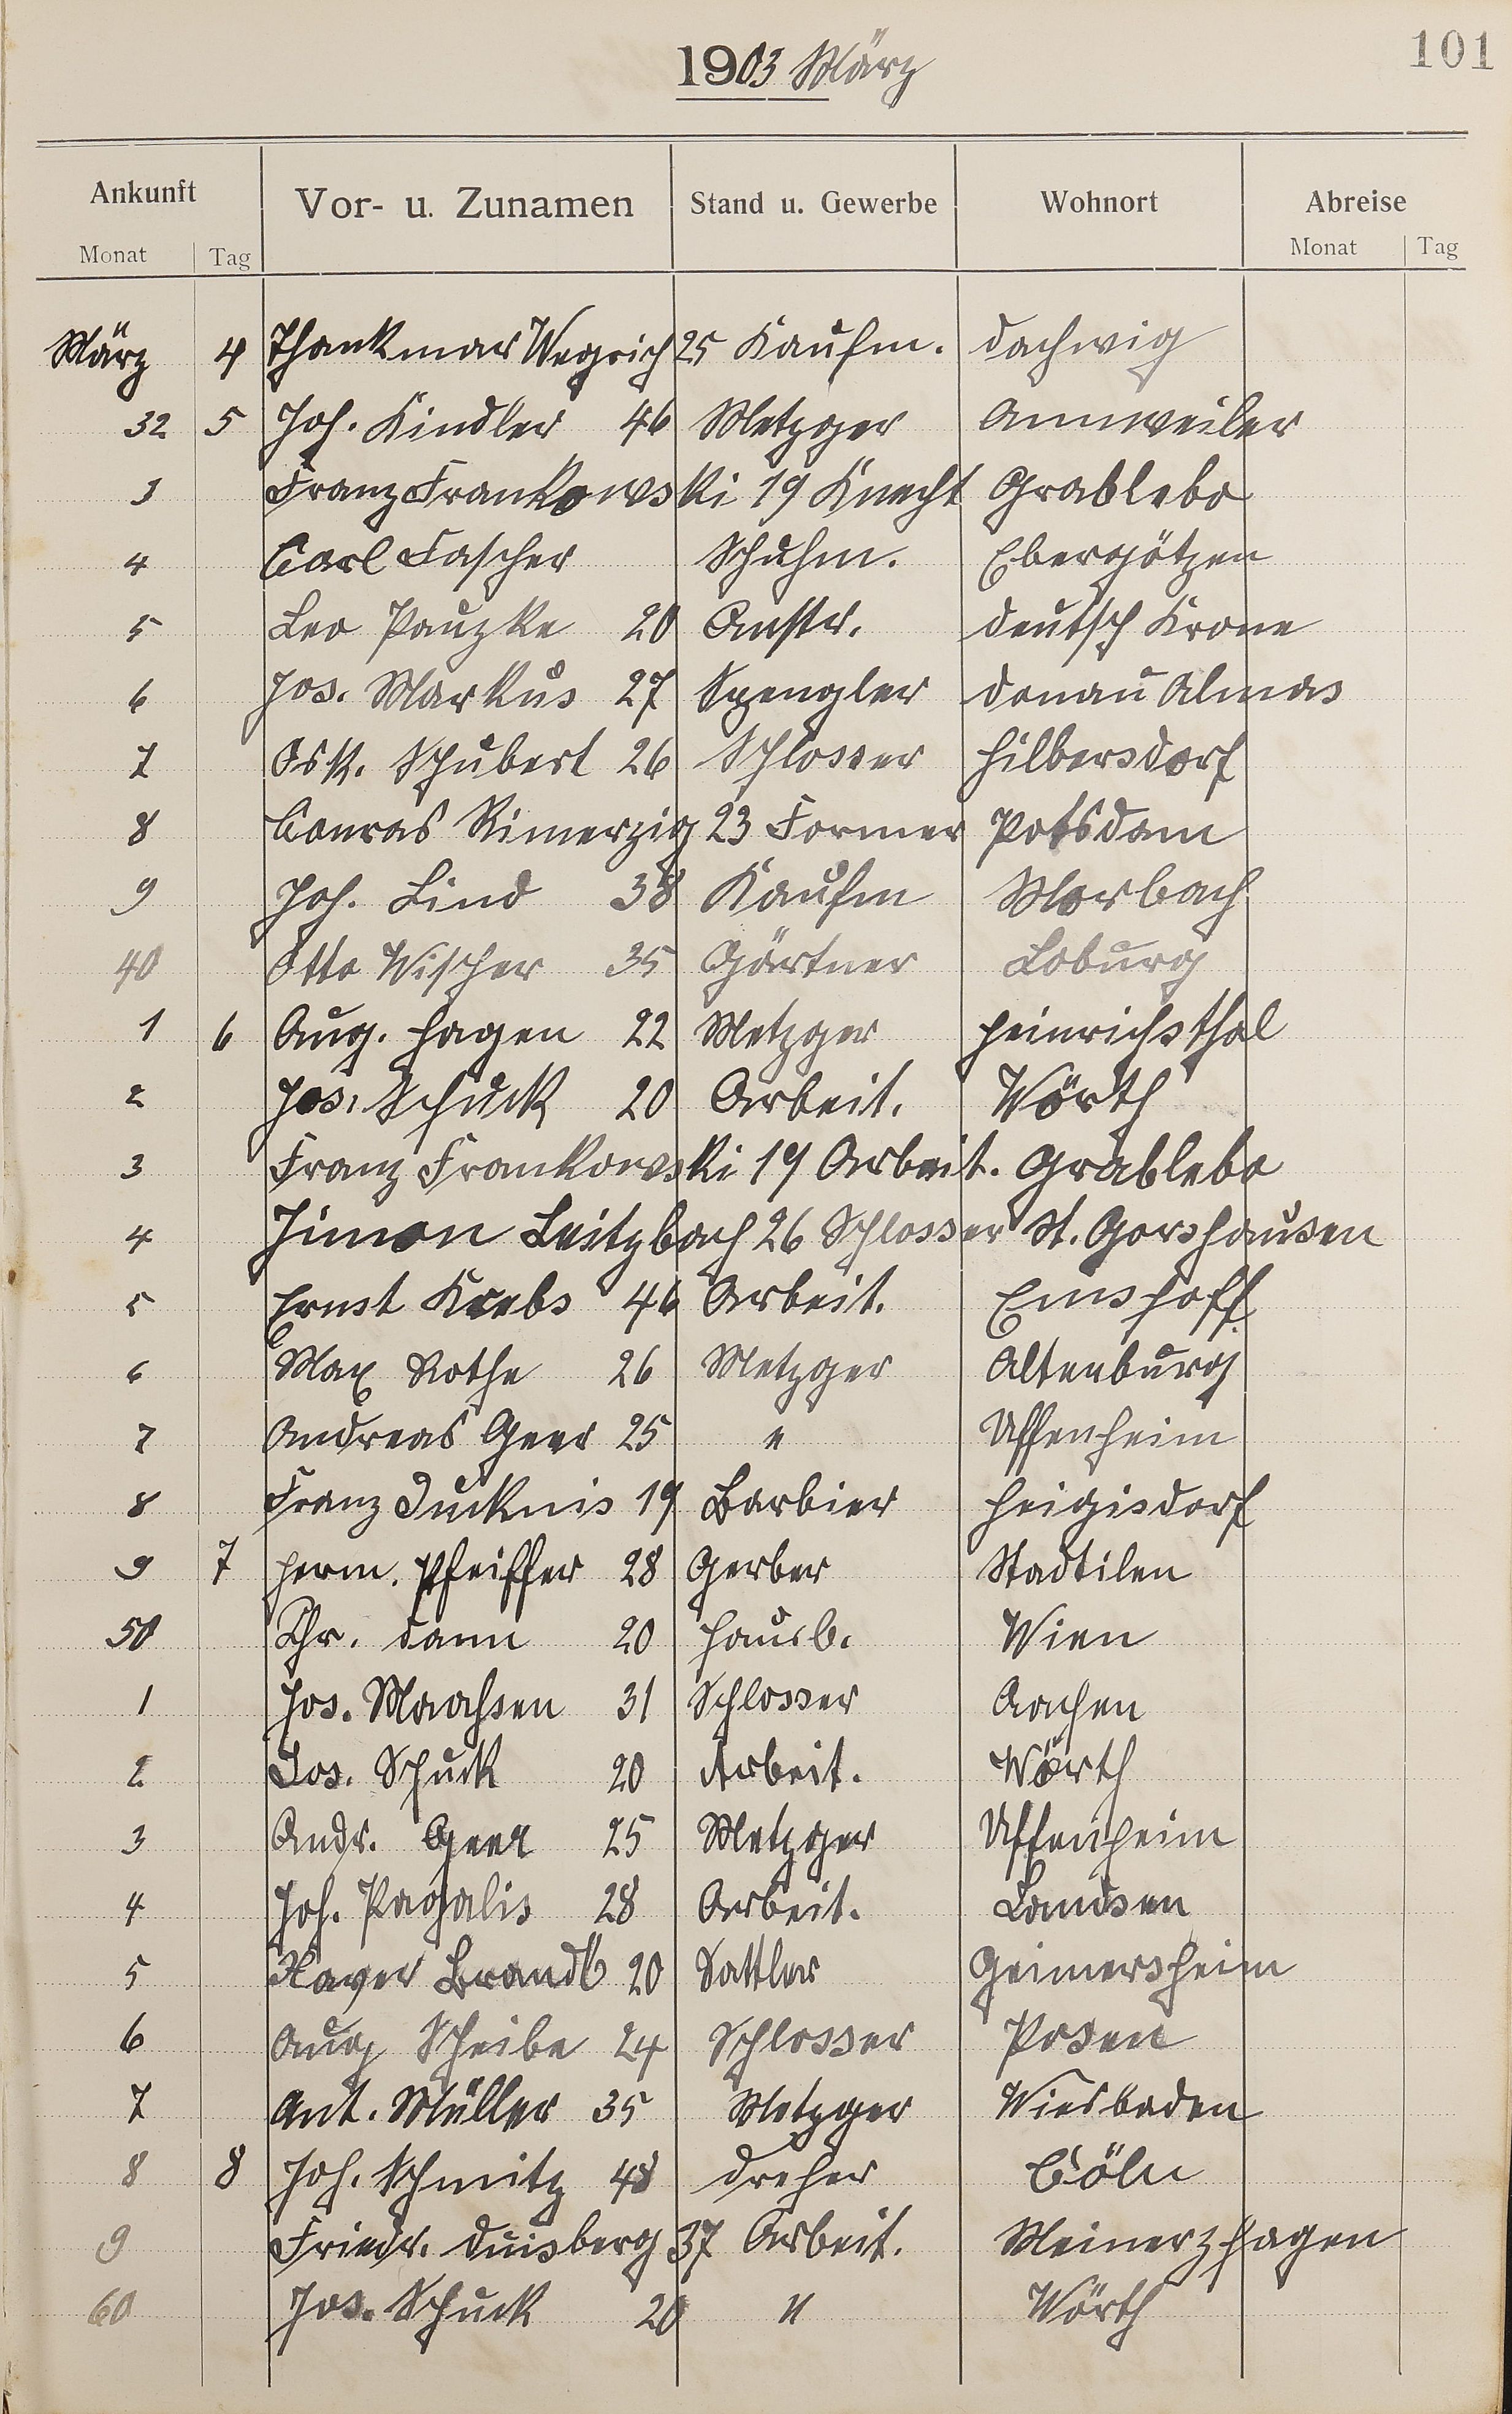 101
1903 März
Ankunft Vor- u. Zunamen Stand u. Gewerbe Wohnort Abreise
Monat Tag Monat Tag
März 4 Thankmar Wegrich 25 Kaufm. Dachwig
32 5 Joh. Kindler 46 Metzger Annweiler
3 Franz Frankowski 19 Knecht Grablebo
4 Carl Fascher Schuhm. Ebergötzen
5 Leo Pauzke 20 Anstr. Deutsch Krone
6 Jos. Markus 27 Spengler Donau Almas
7 Osk. Schubert 26 Schlosser Hilbersdorf
8 Conrad Rimerzig 23 Former Potsdam
9 Joh. Lind 38 Kaufm Morbach
40 Otto Wischer 35 Gärtner Loburg
1 6 Aug. Hagen 22 Metzger Heinrichsthal
2 Jos. Schuck 20 Arbeit. Wörth
3 Franz Frankowski 19 Arbeit. Grablebo
4 Simon Leitzbach 26 Schlosser St. Gorshausen
5 Ernst Krebs 46 Arbeit. Emshoff
6 Max Rothe 26 Metzger Altenburg
7 Andreas Geer 25 " Uffenheim
8 Franz Ducknis 19 Barbier Heigisdorf
9 7 Herm. Pfeiffer 28 Gerber Stadtilen
50 Chr. Dann 20 Hausb. Wien
1 Jos. Maahsen 31 Schlosser Aachen
2 Jos. Schuck 20 Arbeit. Wörth
3 Andr. Geer 25 Metzger Uffenheim
4 Joh. Pagalis 28 Arbeit. Landsen
5 Xaver Brandl 20 Sattler Geimersheim
6 Aug Scheibe 24 Schlosser Posen
7 Ant. Müller 35 Metzger Wiesbaden
8 8 Joh. Schmitz 48 Dreher Cöln
9 Friedr. Duisberg 37 Arbeit. Meinerzhagen
60 Jos. Schuck 20 " Wörth